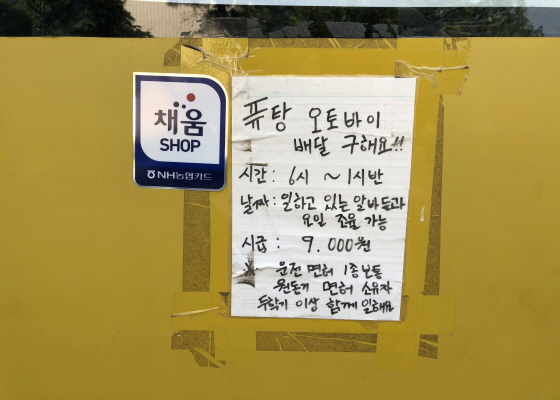 채움
SHOP
NH농협카드
퓨탕 오토바이
배달 구해요!!
시간: 6시 ~ 1시반
날짜: 일하고 있는 알바들과
요일 조율 가능
시급: 9.000원
※ 운전 면허 1종보통
원동기 면허 소유자
두학기 이상 함께 일해요